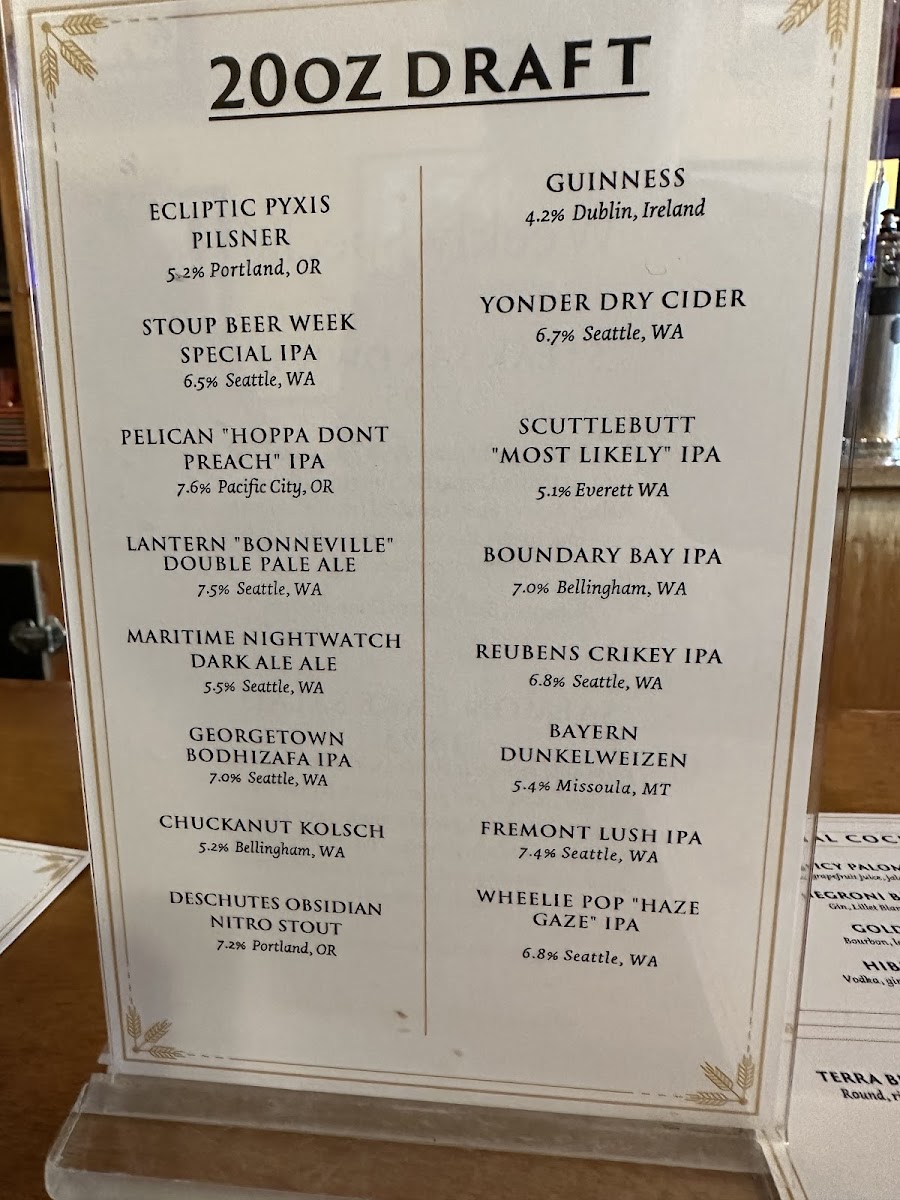 20OZ DRAFT
ECLIPTIC PYXIS
PILSNER
5.2% Portland, OR
STOUP BEER WEEK
SPECIAL IPA
6.5% Seattle, WA
PELICAN "HOPPA DONT
PREACH" IPA
7.6% Pacific City, OR
LANTERN "BONNEVILLE"
DOUBLE PALE ALE
7.5% Seattle, WA
MARITIME NIGHTWATCH
DARK ALE ALE
5.5% Seattle, WA
GEORGETOWN
BODHIZAFA IPA
7.0% Seattle, WA
CHUCKANUT KOLSCH
5.2% Bellingham, WA
DESCHUTES OBSIDIAN
NITRO STOUT
7.2% Portland, OR
GUINNESS
4.2% Dublin, Ireland
YONDER DRY CIDER
6.7% Seattle, WA
SCUTTLEBUTT
"MOST LIKELY" IPA
5.1% Everett WA
BOUNDARY BAY IPA
7.0% Bellingham, WA
REUBENS CRIKEY IPA
6.8% Seattle, WA
BAYERN
DUNKELWEIZEN
5.4% Missoula, MT
FREMONT LUSH IPA
7.4% Seattle, WA
WHEELIE POP "HAZE
GAZE" IPA
6.8% Seattle, WA
grapefruit juice,
Gin, Lillet
GOLD
Bourbon,
HIB
Vodka,
TERRA
Round,